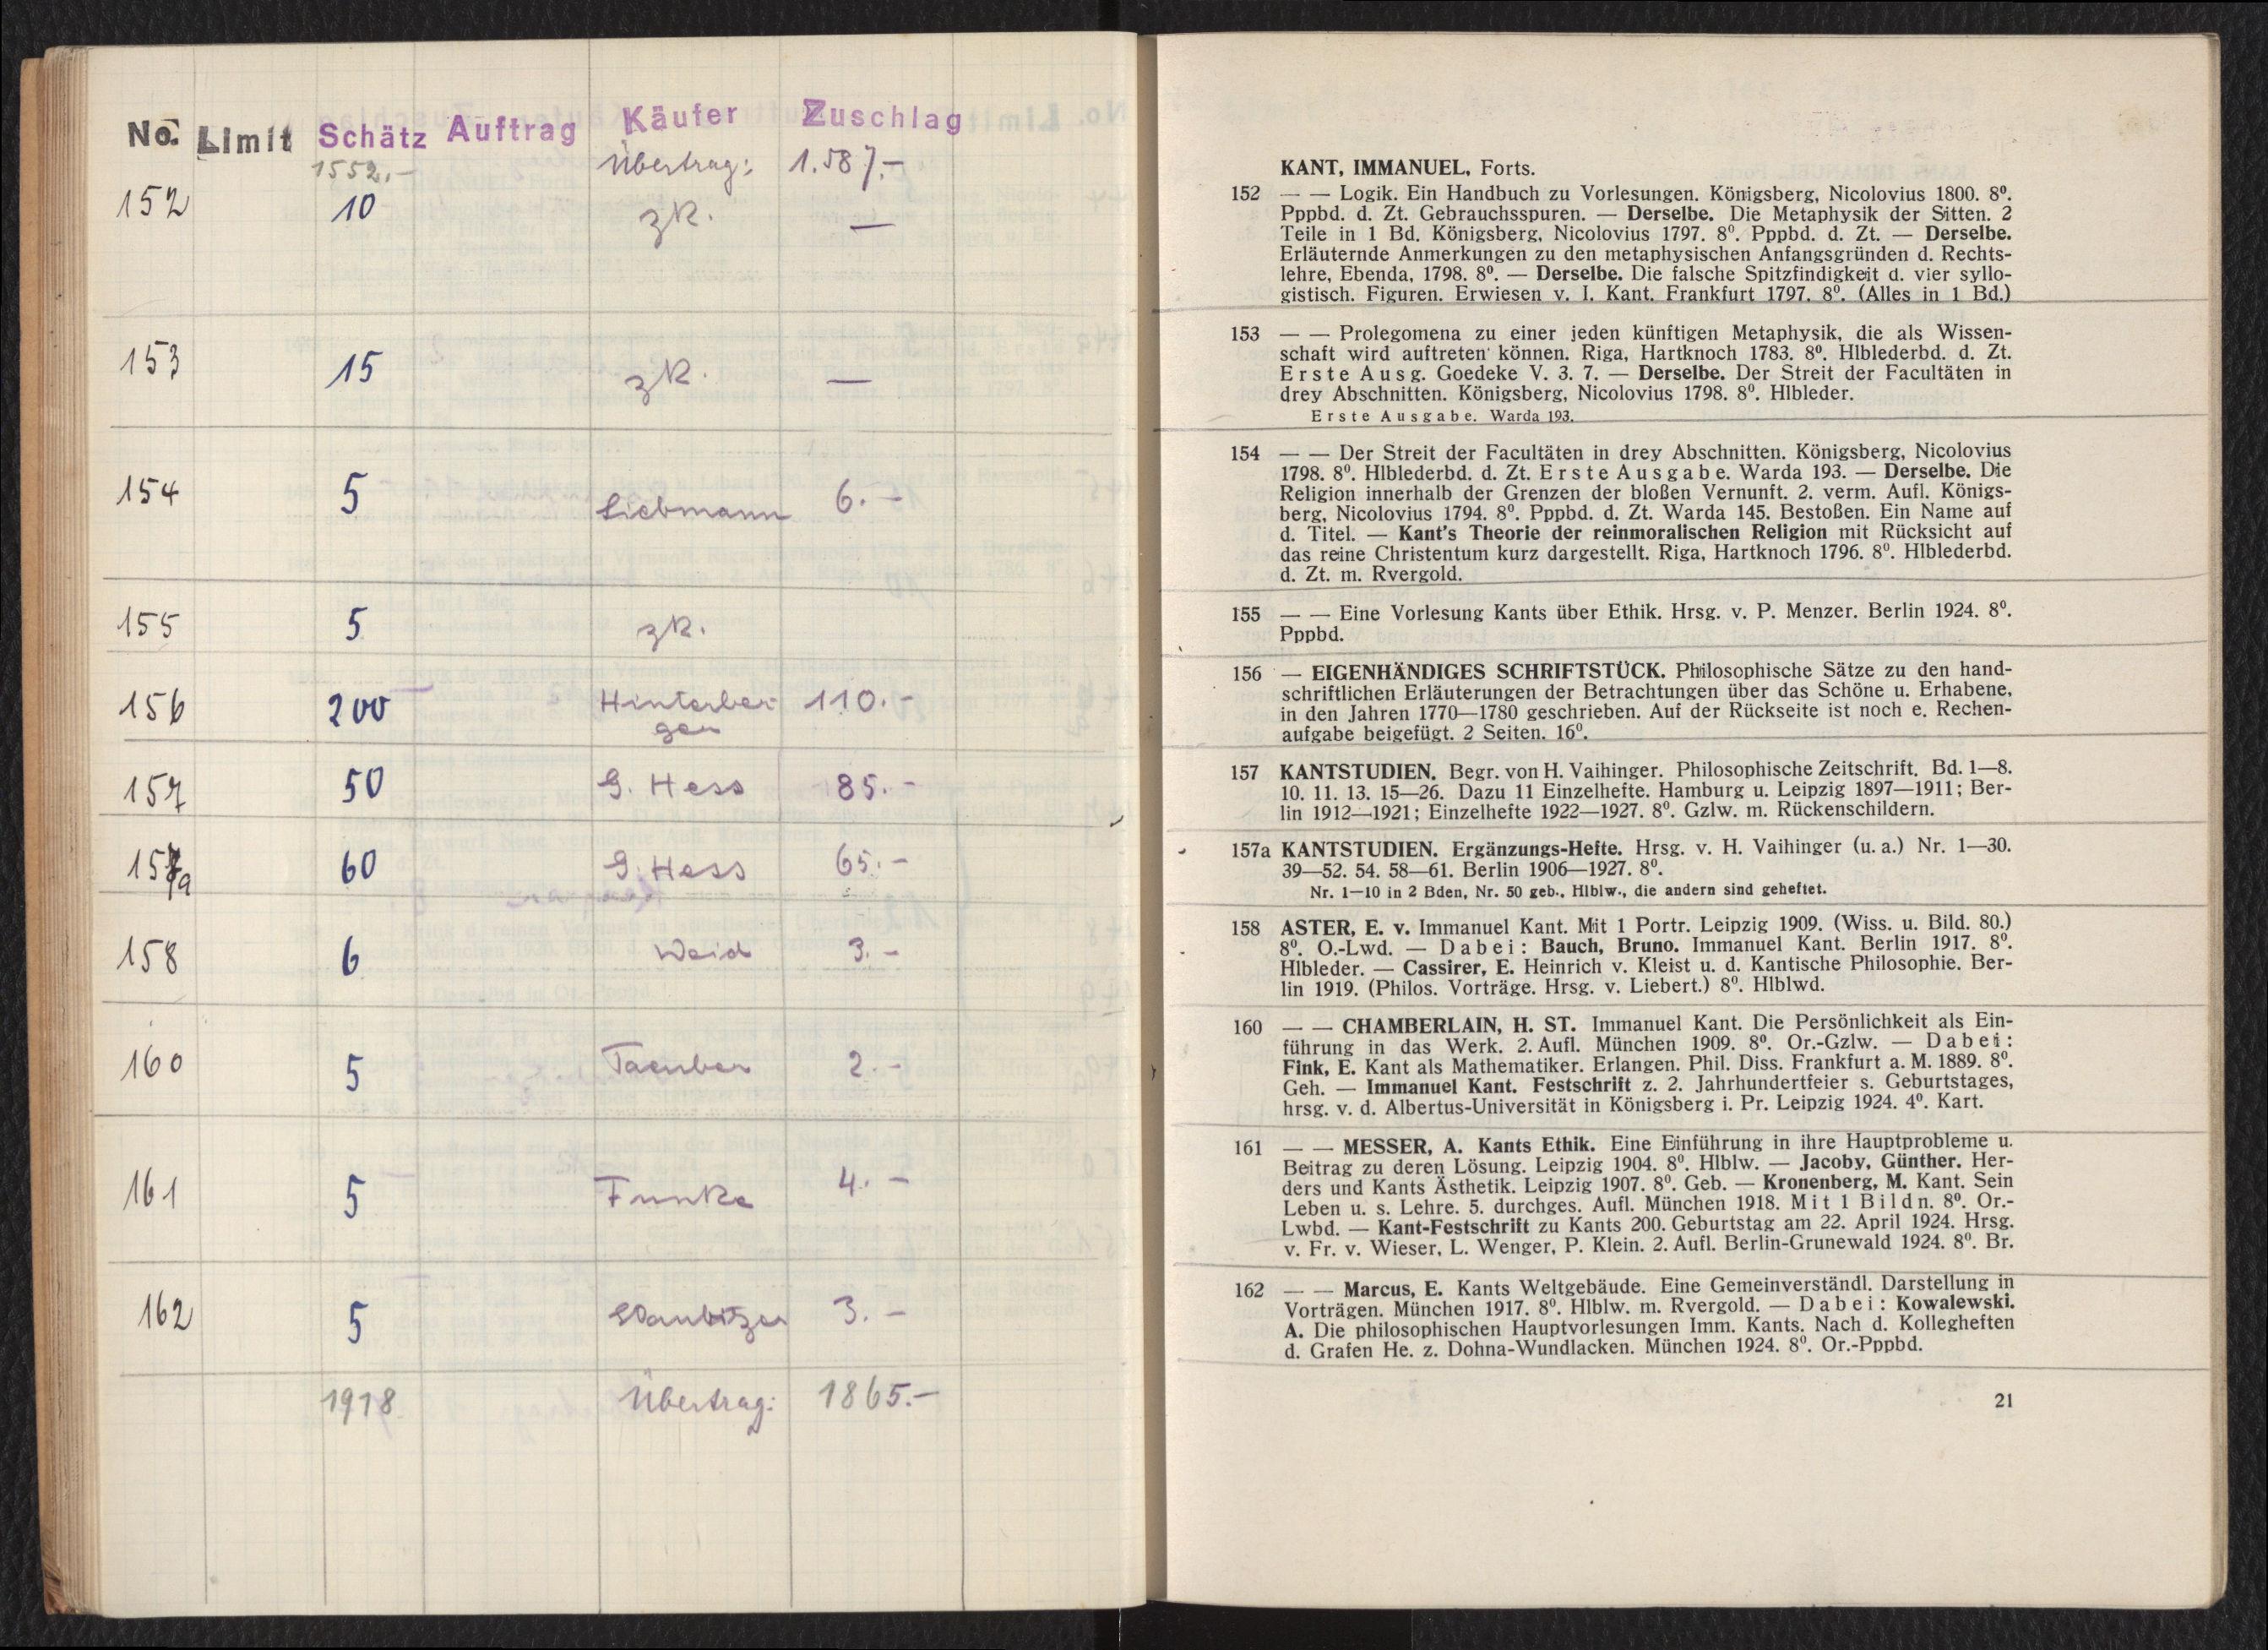 No. Limit Schätz Auftrag Käufer Zuschlag
1552.- Übertrag: 1.587.-
152 10 zk. —
153 15 zk. —
154 5 Liebmann 6.-
155 5 zk.
156 200 Hinterber- 110.-
ger
157 50 G. Hess 85.-
157a 60 G. Hess 65.-
158 6 Weid 3.-
160 5 Taeuber 2.-
161 5 Funke 4.-
162 5 3.-
1918 Übertrag: 1865.-
KANT, IMMANUEL, Forts.
152 — — Logik. Ein Handbuch zu Vorlesungen. Königsberg, Nicolovius 1800. 8⁰.
Pppbd. d. Zt. Gebrauchsspuren. — Derselbe. Die Metaphysik der Sitten. 2
Teile in 1 Bd. Königsberg, Nicolovius 1797. 8⁰. Pppbd. d. Zt. — Derselbe.
Erläuternde Anmerkungen zu den metaphysischen Anfangsgründen d. Rechts-
lehre, Ebenda, 1798. 8⁰. — Derselbe. Die falsche Spitzfindigkeit d. vier syllo-
gistisch. Figuren. Erwiesen v. I. Kant. Frankfurt 1797. 8⁰. (Alles in 1 Bd.)
153 — — Prolegomena zu einer jeden künftigen Metaphysik, die als Wissen-
schaft wird auftreten können. Riga, Hartknoch 1783. 8⁰. Hlblederbd. d. Zt.
Erste Ausg. Goedeke V. 3. 7. — Derselbe. Der Streit der Facultäten in
drey Abschnitten. Königsberg, Nicolovius 1798. 8⁰. Hlbleder.
Erste Ausgabe. Warda 193.
154 — — Der Streit der Facultäten in drey Abschnitten. Königsberg, Nicolovius
1798. 8⁰. Hlblederbd. d. Zt. Erste Ausgabe. Warda 193. — Derselbe. Die
Religion innerhalb der Grenzen der bloßen Vernunft. 2. verm. Aufl. Königs-
berg, Nicolovius 1794. 8⁰. Pppbd. d. Zt. Warda 145. Bestoßen. Ein Name auf
d. Titel. — Kant's Theorie der reinmoralischen Religion mit Rücksicht auf
das reine Christentum kurz dargestellt. Riga, Hartknoch 1796. 8⁰. Hlblederbd.
d. Zt. m. Rvergold.
155 — — Eine Vorlesung Kants über Ethik. Hrsg. v. P. Menzer. Berlin 1924. 8⁰.
Pppbd.
156 — EIGENHÄNDIGES SCHRIFTSTÜCK. Philosophische Sätze zu den hand-
schriftlichen Erläuterungen der Betrachtungen über das Schöne u. Erhabene,
in den Jahren 1770—1780 geschrieben. Auf der Rückseite ist noch e. Rechen-
aufgabe beigefügt. 2 Seiten. 16⁰.
157 KANTSTUDIEN. Begr. von H. Vaihinger. Philosophische Zeitschrift. Bd. 1—8.
10. 11. 13. 15—26. Dazu 11 Einzelhefte. Hamburg u. Leipzig 1897—1911; Ber-
lin 1912—1921; Einzelhefte 1922—1927. 8⁰. Gzlw. m. Rückenschildern.
157a KANTSTUDIEN. Ergänzungs-Hefte. Hrsg. v. H. Vaihinger (u. a.) Nr. 1—30.
39—52. 54. 58—61. Berlin 1906—1927. 8⁰.
Nr. 1—10 in 2 Bden, Nr. 50 geb., Hlblw., die andern sind geheftet.
158 ASTER, E. v. Immanuel Kant. Mit 1 Portr. Leipzig 1909. (Wiss. u. Bild. 80.)
8⁰. O.-Lwd. — Dabei: Bauch, Bruno. Immanuel Kant. Berlin 1917. 8⁰.
Hlbleder. — Cassirer, E. Heinrich v. Kleist u. d. Kantische Philosophie. Ber-
lin 1919. (Philos. Vorträge. Hrsg. v. Liebert.) 8⁰. Hlblwd.
160 — — CHAMBERLAIN, H. ST. Immanuel Kant. Die Persönlichkeit als Ein-
führung in das Werk. 2. Aufl. München 1909. 8⁰. Or.-Gzlw. — Dabei:
Fink, E. Kant als Mathematiker. Erlangen. Phil. Diss. Frankfurt a. M. 1889. 8⁰.
Geh. — Immanuel Kant. Festschrift z. 2. Jahrhundertfeier s. Geburtstages,
hrsg. v. d. Albertus-Universität in Königsberg i. Pr. Leipzig 1924. 4⁰. Kart.
161 — — MESSER, A. Kants Ethik. Eine Einführung in ihre Hauptprobleme u.
Beitrag zu deren Lösung. Leipzig 1904. 8⁰. Hlblw. — Jacoby, Günther. Her-
ders und Kants Ästhetik. Leipzig 1907. 8⁰. Geb. — Kronenberg, M. Kant. Sein
Leben u. s. Lehre. 5. durchges. Aufl. München 1918. Mit 1 Bildn. 8⁰. Or.-
Lwbd. — Kant-Festschrift zu Kants 200. Geburtstag am 22. April 1924. Hrsg.
v. Fr. v. Wieser, L. Wenger, P. Klein. 2. Aufl. Berlin-Grunewald 1924. 8⁰. Br.
162 — — Marcus, E. Kants Weltgebäude. Eine Gemeinverständl. Darstellung in
Vorträgen. München 1917. 8⁰. Hlblw. m. Rvergold. — Dabei: Kowalewski,
A. Die philosophischen Hauptvorlesungen Imm. Kants. Nach d. Kollegheften
d. Grafen He. z. Dohna-Wundlacken. München 1924. 8⁰. Or.-Pppbd.
21